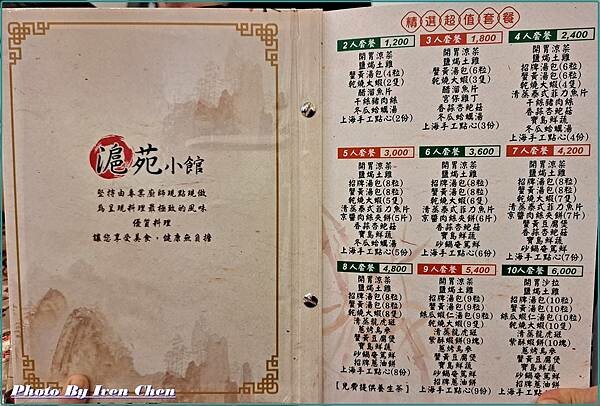 滬苑小館
堅持由專業廚師現點現做
為呈現料理最極致的風味
優質料理
讓您享受美食，健康無負擔
精選超值套餐
2人套餐 1,200
開胃涼菜
鹽焗土雞
蟹黃湯包(4粒)
乾燒大蝦(2隻)
醋溜魚片
干絲豬肉絲
香蒜杏鮑菇
冬瓜蛤蠣湯
上海手工點心(2份)
3人套餐 1,800
開胃涼菜
鹽焗土雞
蟹黃湯包(6粒)
乾燒大蝦(3隻)
醋溜魚片
宮保雞丁
香蒜杏鮑菇
冬瓜蛤蠣湯
上海手工點心(3份)
4人套餐 2,400
開胃涼菜
鹽焗土雞
招牌湯包(6粒)
蟹黃湯包(6粒)
乾燒大蝦(4隻)
清蒸泰式菲力魚片
干絲豬肉絲
香蒜杏鮑菇
寶島鮮蔬
冬瓜蛤蠣湯
上海手工點心(4份)
5人套餐 3,000
開胃涼菜
鹽焗土雞
招牌湯包(8粒)
蟹黃湯包(8粒)
乾燒大蝦(5隻)
清蒸泰式菲力魚片
京醬肉絲夾餅(5片)
香蒜杏鮑菇
寶島鮮蔬
冬瓜蛤蠣湯
上海手工點心(5份)
6人套餐 3,600
開胃涼菜
鹽焗土雞
招牌湯包(8粒)
蟹黃湯包(8粒)
乾燒大蝦(6隻)
清蒸泰式菲力魚片
京醬肉絲夾餅(6片)
香蒜杏鮑菇
寶島鮮蔬
砂鍋醃篤鮮
上海手工點心(6份)
7人套餐 4,200
開胃涼菜
鹽焗土雞
招牌湯包(8粒)
蟹黃湯包(8粒)
乾燒大蝦(7隻)
清蒸泰式菲力魚片
京醬肉絲夾餅(7片)
蟹黃豆腐煲
香蒜杏鮑菇
寶島鮮蔬
砂鍋醃篤鮮
上海手工點心(7份)
8人套餐 4,800
開胃涼菜
鹽焗土雞
招牌湯包(8粒)
蟹黃湯包(8粒)
乾燒大蝦(8隻)
清蒸龍虎斑
蔥烤烏參
蟹黃豆腐煲
寶島鮮蔬
砂鍋醃篤鮮
招牌蔥油餅
上海手工點心(8份)
9人套餐 5,400
開胃涼菜
鹽焗土雞
招牌湯包(9粒)
絲瓜蝦仁湯包(9粒)
乾燒大蝦(9隻)
清蒸龍虎斑
紫酥蝦餅(9塊)
蔥烤烏參
蟹黃豆腐煲
寶島鮮蔬
砂鍋醃篤鮮
招牌蔥油餅
上海手工點心(9份)
10人套餐 6,000
開胃沙拉
鹽焗土雞
招牌湯包(10粒)
絲瓜蝦仁湯包(10粒)
乾燒大蝦(10隻)
清蒸龍虎斑
紫酥蝦餅(10塊)
蔥烤烏參
蟹黃豆腐煲
寶島鮮蔬
砂鍋醃篤鮮
招牌蔥油餅
上海手工點心(10份)
【免費提供養生茶】
Photo By Iren Chen